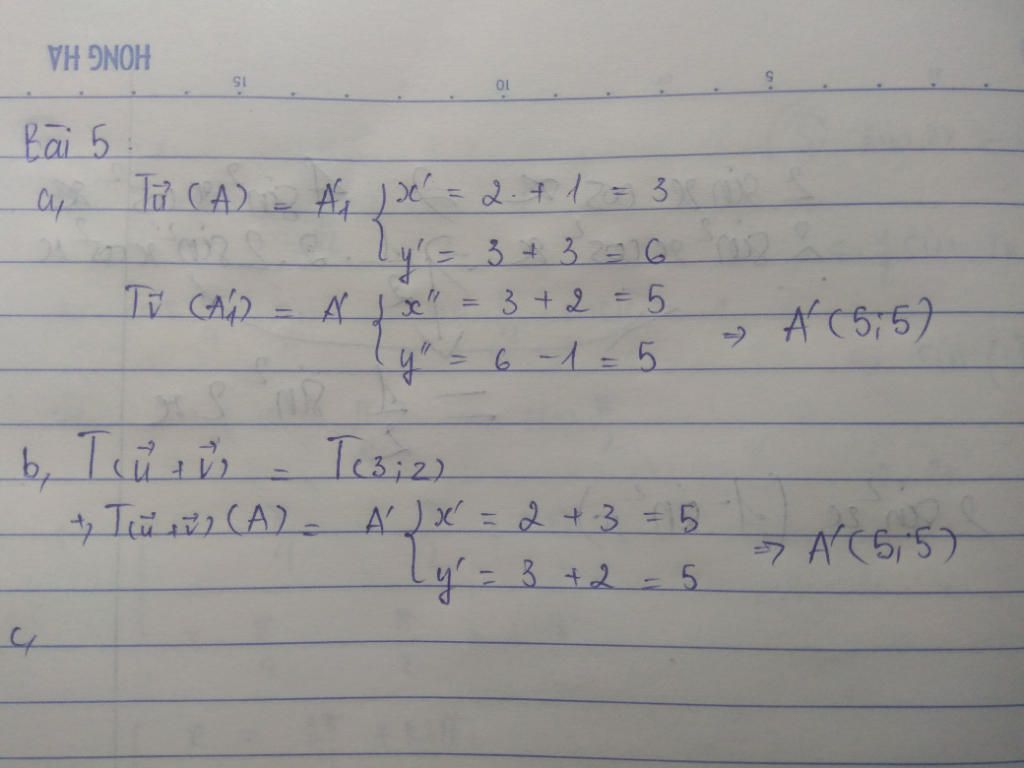 HONG HA
15 10 5
Bài 5 :
a, Tu⃗ (A) = A'₁ { x' = 2 + 1 = 3
y' = 3 + 3 = 6
Tv⃗ (A'₁) = A' { x'' = 3 + 2 = 5
y'' = 6 - 1 = 5 => A' (5;5)
b, T(u⃗ + v⃗) = T(3;2)
+, T(u⃗+v⃗) (A) = A' { x' = 2 + 3 = 5
y' = 3 + 2 = 5 => A' (5;5)
c,